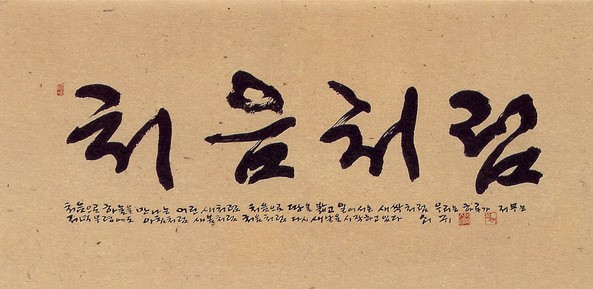 처음처럼
처음으로 하늘을 만나는 어린 새처럼 처음으로 땅을 밟고 일어서는 새싹처럼 우리는 하루가 저무는
저녁무렵에도 아침처럼 새봄처럼 처음처럼 다시 새날을 시작하고 있다 쇠귀